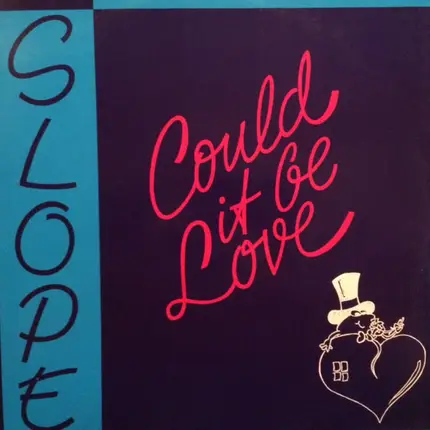 SLOPE
Could
it be
Love